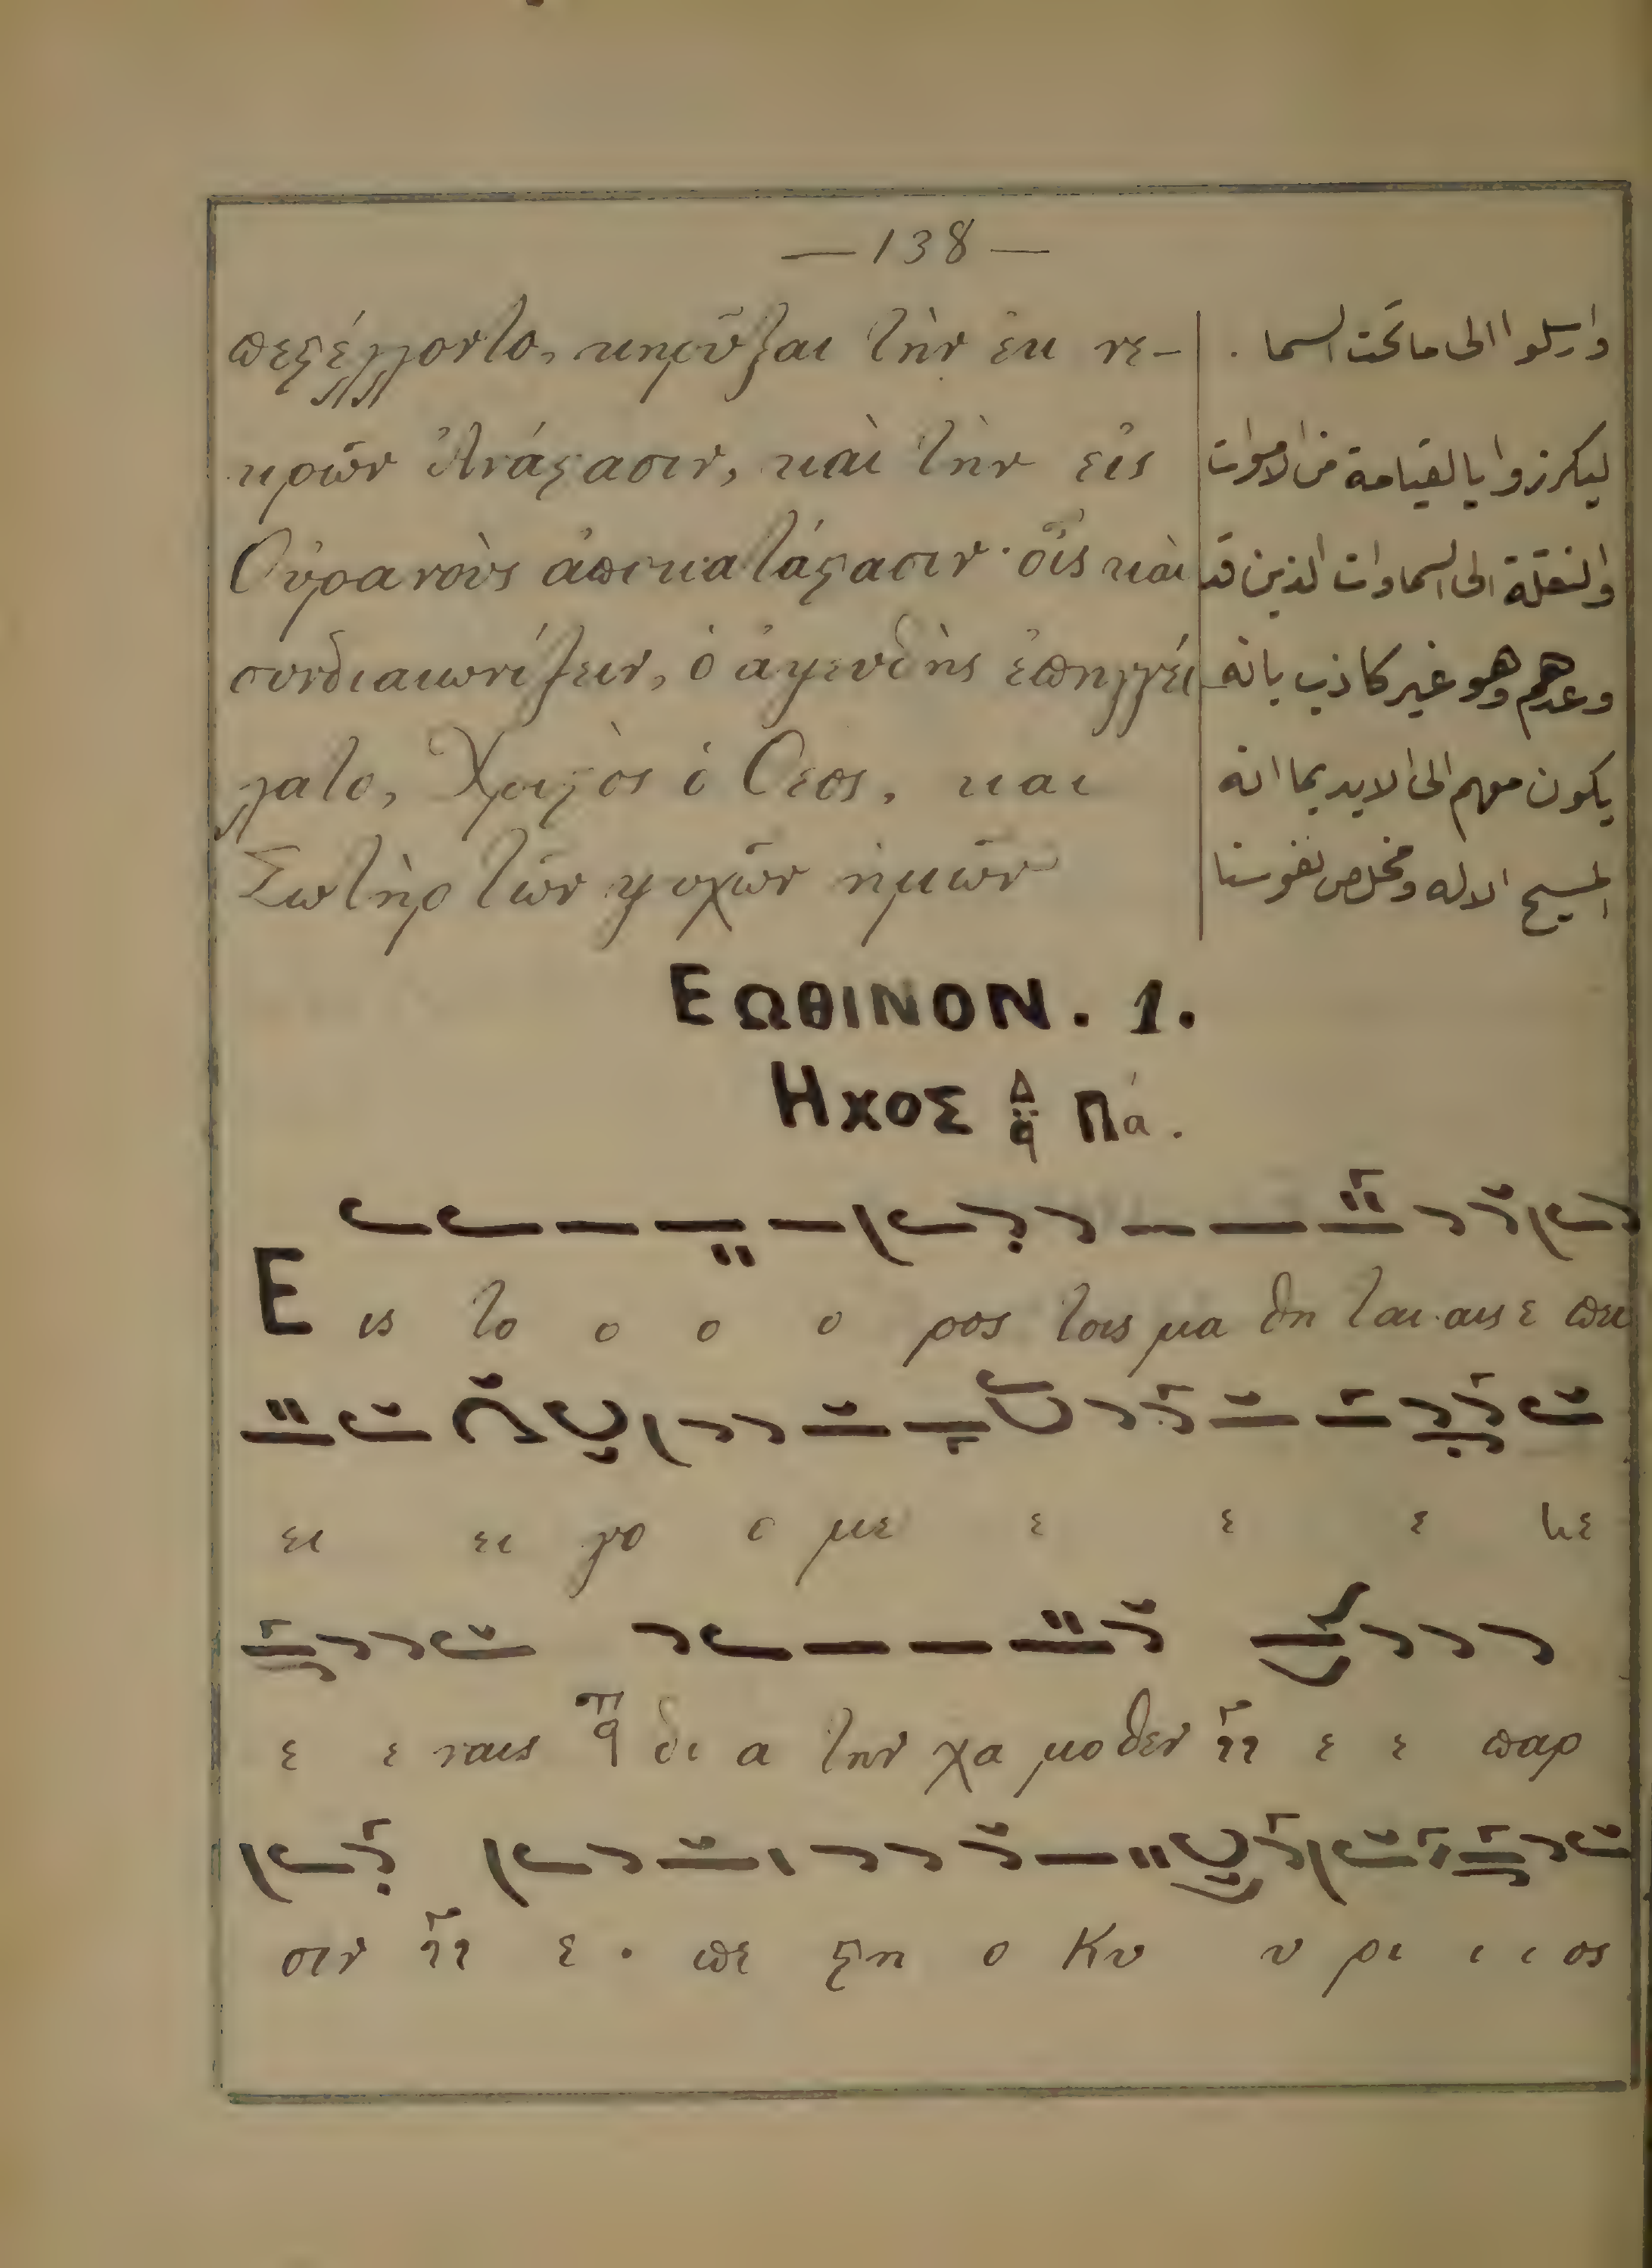 —138—
πεστέλλοντο, κηρῦξαι τὴν ἐκ νε-
κρῶν Ἀνάστασιν, καὶ τὴν εἰς
Οὐρανοὺς ἀποκατάστασιν· οἷς καὶ
συνδιαιωνίζειν, ὁ ἀψευδὴς ἐπηγγεί-
λατο, Χριστὸς ὁ Θεος, και
Σωτὴρ τῶν ψυχῶν ἡμῶν
وارسلوا الى ما تحت السما .
ليكرزوا بالقيامة من الاموات
والنقلة الى السماوات الذين قد
وعدهم وهو غير كاذب بانه
يكون معهم الى الابد بما انه
المسيح الاله ومخلص نفوسنا
ΕΩΘΙΝΟΝ. 1.
ΗΧΟΣ Πα.
Ε ις το ο ο ο ρος τοις μα θη ται αις ε πει
ει ει γο ο με ε ε ε νε
ε ε ναις δι α την χα μο θεν ε ε παρ
σιν ε . πε στη ο Κυ υ ρι ι ι ος